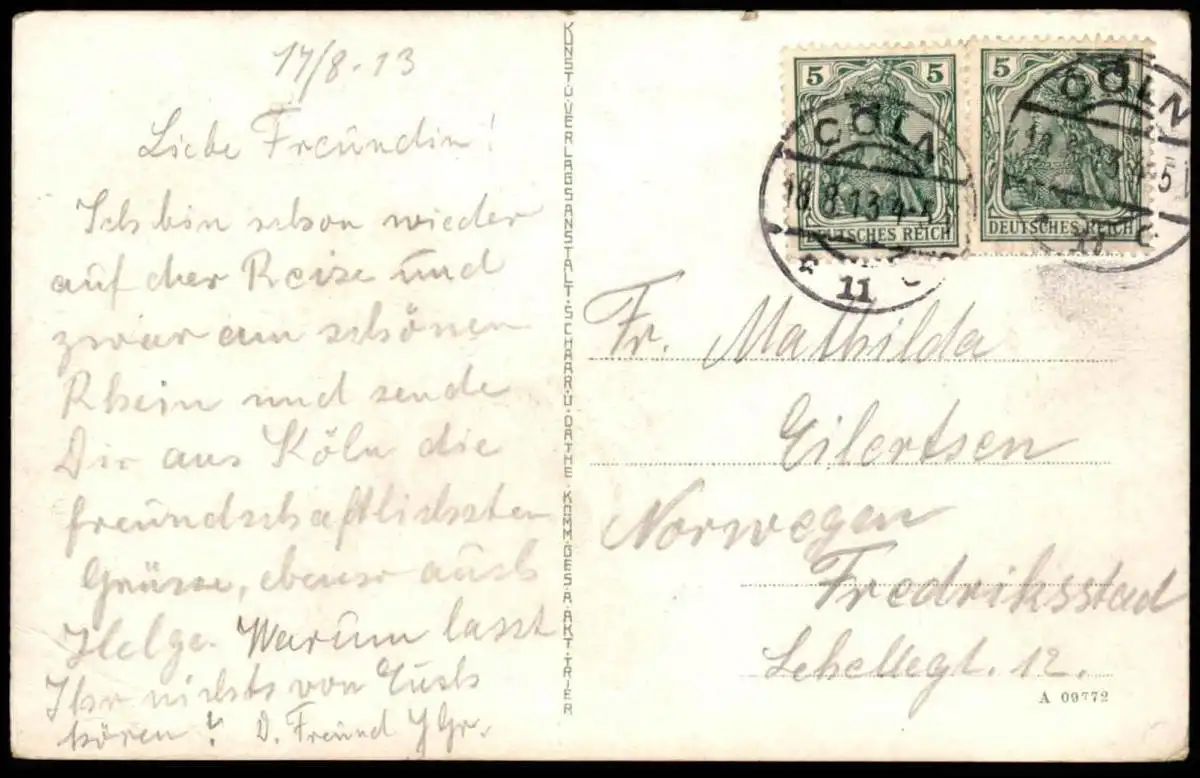 17/8.13
Liebe Freündin!
Ich bin schon wieder
auf der Reise und
zwar am schönen
Rhein und sende
Dir aus Köln die
freündschaftlichsten
Grüsse, ebenso aüch
Helga. Warüm lasst
Ihr nichts von Eüch
hören? D. Freünd
KUNST.U.VERLAGSANSTALT.SCHAAR.U.DATHE.KOMM.GES.A.AKT.TRIER
5 5
CÖLN
18.8.13.4-5
DEUTSCHES REICH
11
5
CÖLN
DEUTSCHES REICH
Fr. Mathilda
Eilertsen
Norwegen
Fredriksstad
12.
A 09772